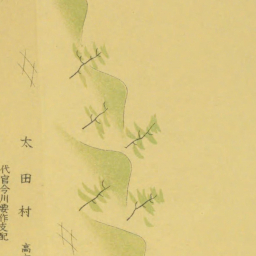 太田村 高
代官今川要作支配